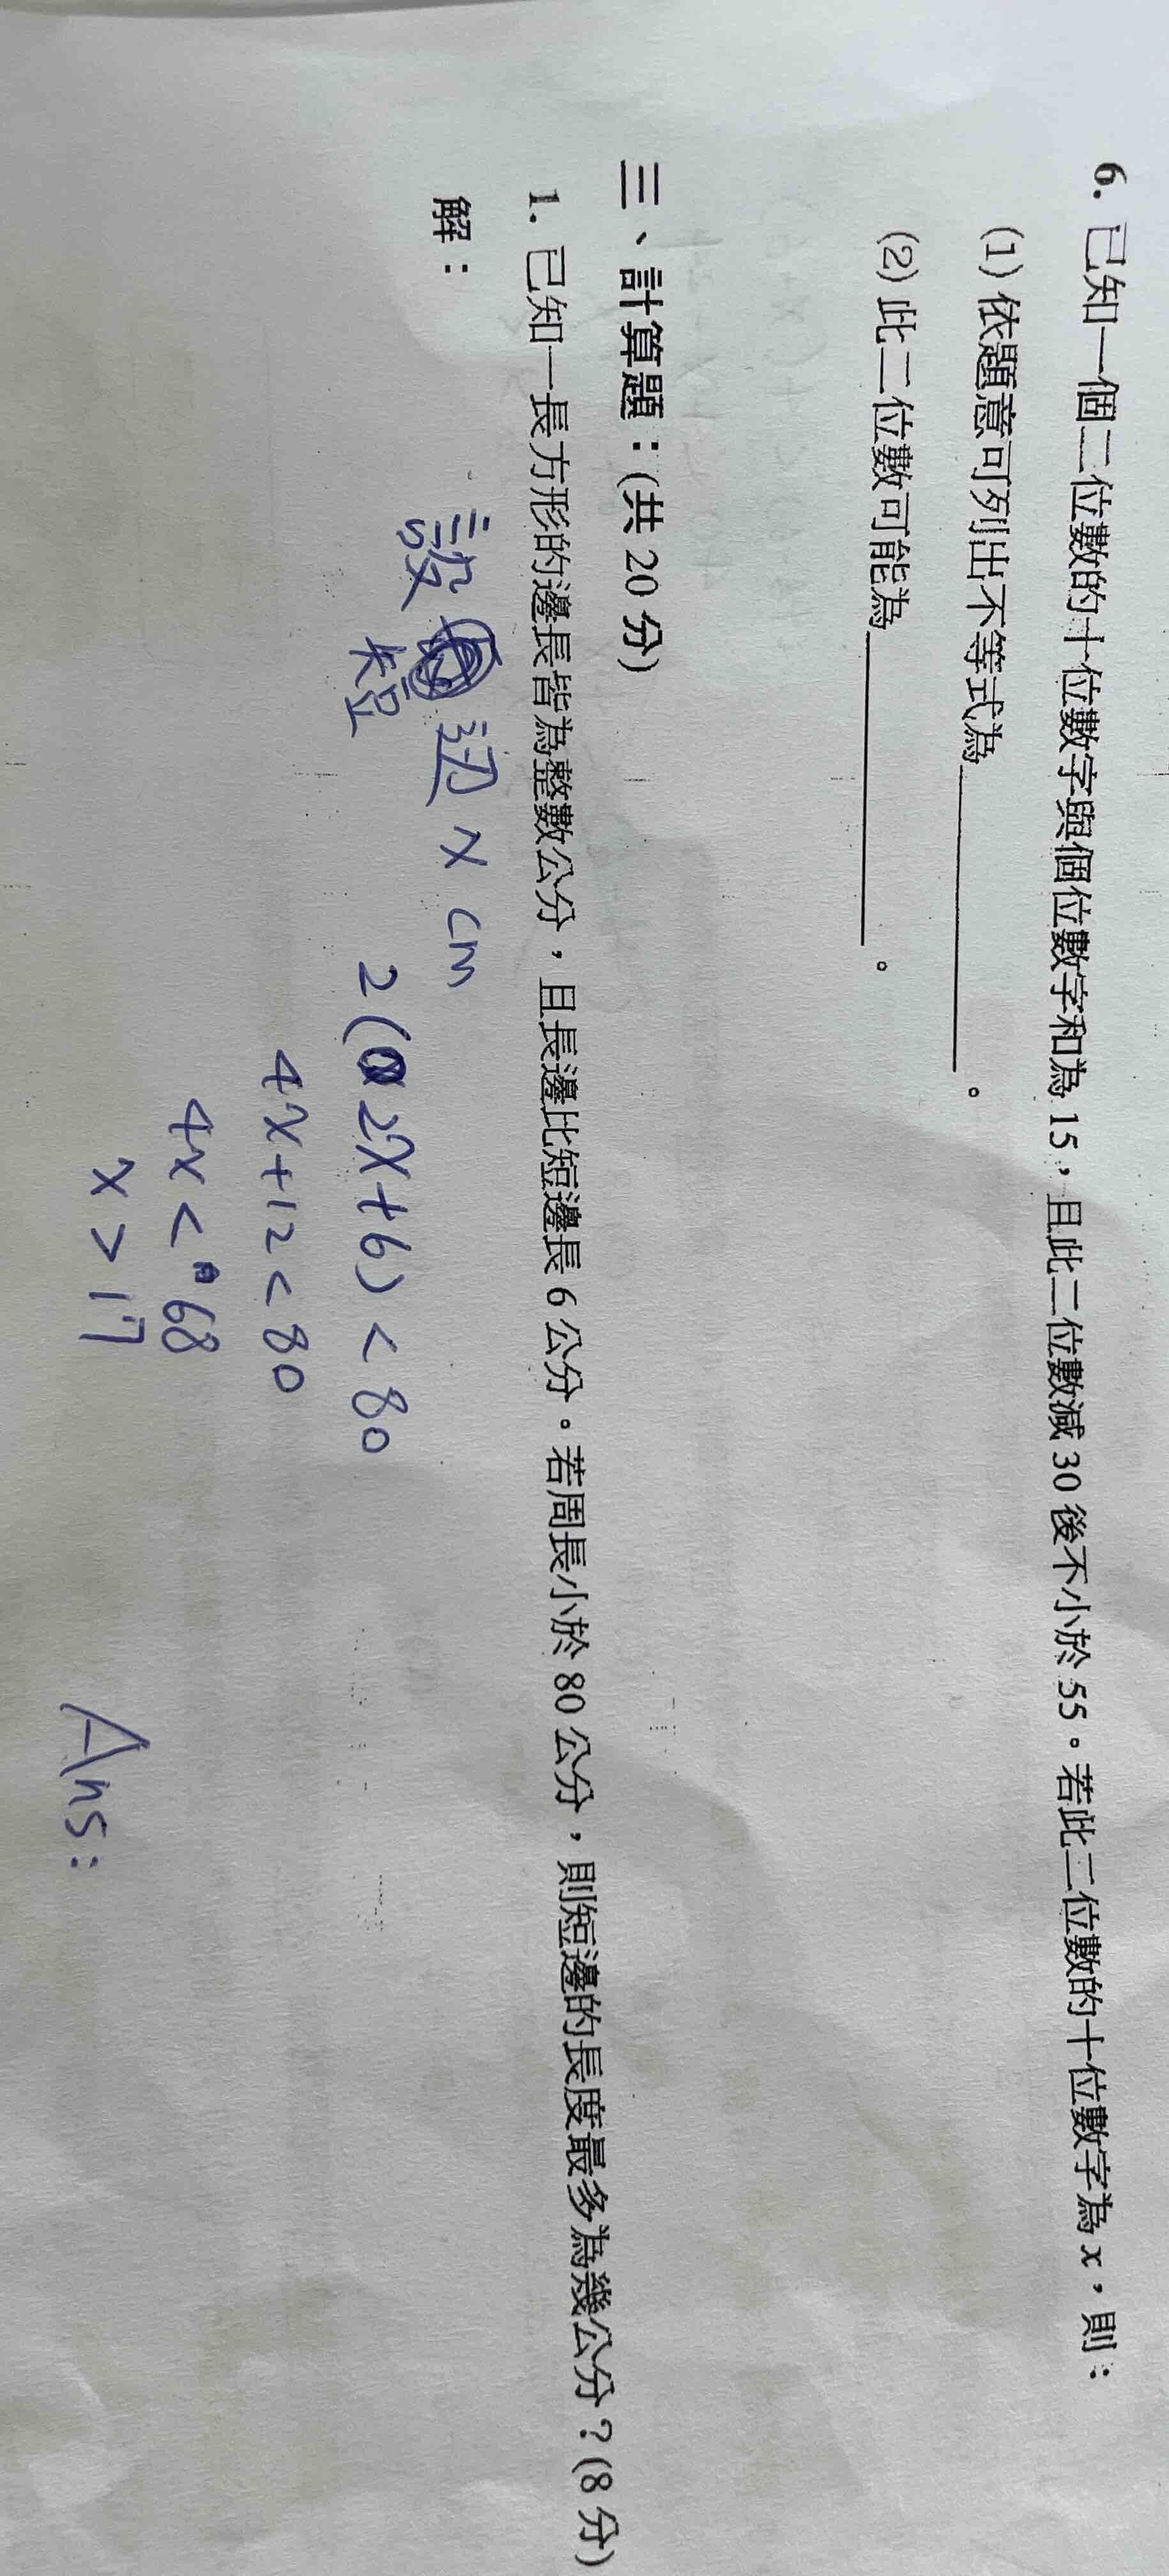 6. 已知一個二位數的十位數字與個位數字和為 15，且此二位數減 30 後不小於 55。若此二位數的十位數字為 x，則：
(1) 依題意可列出不等式為＿＿＿＿＿＿。
(2) 此二位數可能為＿＿＿＿＿＿。
三、計算題：(共 20 分)
1. 已知一長方形的邊長皆為整數公分，且長邊比短邊長 6 公分。若周長小於 80 公分，則短邊的長度最多為幾公分？(8 分)
解：
設短边 x cm
2(2x+6) < 80
4x+12 < 80
4x < 68
x > 17
Ans: